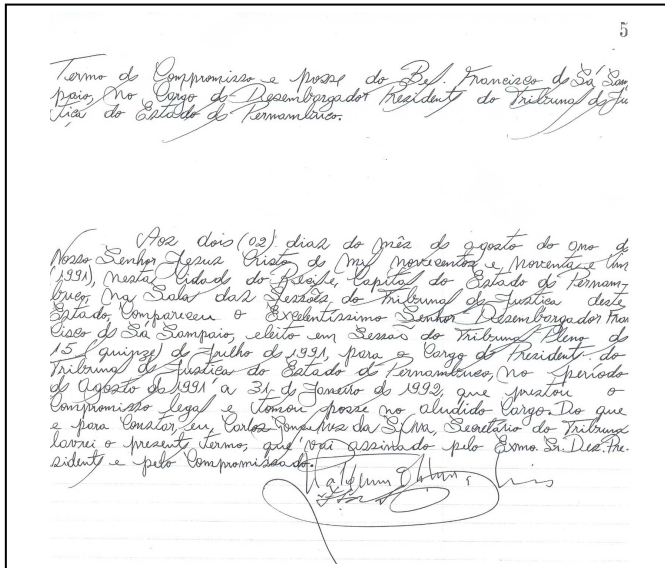 5
Termo de Compromisso e posse do Bel. Francisco de Sá Sam
paio, no Cargo de Desembargador Presidente do Tribunal de Jus
tiça do Estado de Pernambuco.
Aos dois (02) dias do mês de agosto do ano de
Nosso Senhor Jesus Cristo de mil novecentos e noventa e um
(1991), nesta Cidade do Recife, Capital do Estado de Pernam-
buco, na Sala das Sessões do Tribunal de Justiça deste
Estado, Compareceu o Excelentíssimo Senhor Desembargador Fran
cisco de Sá Sampaio, eleito em Sessão do Tribunal Pleno de
15 (quinze) de Julho de 1991, para o Cargo de Presidente do
Tribunal de Justiça do Estado de Pernambuco, no período
de Agosto de 1991 a 31 de Janeiro de 1992, que prestou o
Compromisso legal e tomou posse no aludido Cargo. Do que
e para Constar, eu, Carlos Gonçalves da Silva, Secretário do Tribunal
lavrei o presente termo, que vai assinado pelo Exmo. Sr. Des. Pre-
sidente e pelo Compromissado.